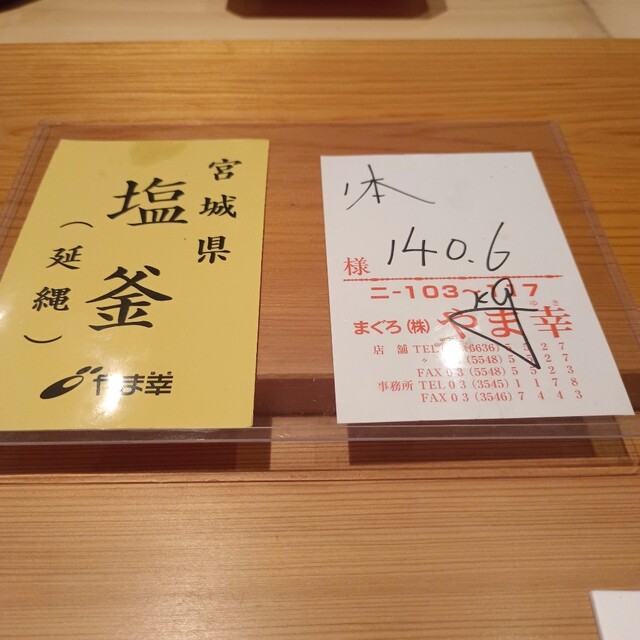 宮城県
塩釜
(延縄)
やま幸
様
140.6
kg
ニ-103~117
まぐろ(株)やま幸
ゆき
店舗 TEL 03(6636)5527
〃 03(5548)5527
FAX 03(5548)5523
事務所 TEL 03(3545)1178
FAX 03(3546)7443